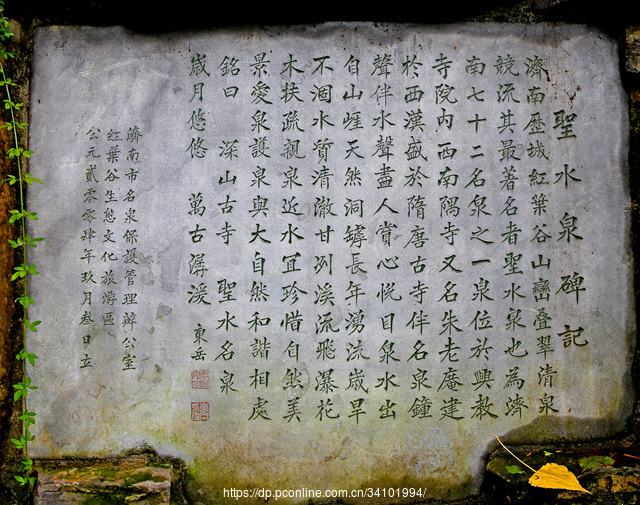 聖水泉碑記
濟南歷城紅葉谷山巒疊翠清泉
競流其最著名者聖水泉也為濟
南七十二名泉之一泉位於興教
寺院內西南隅寺又名朱老庵建
於西漢盛於隋唐古寺伴名泉鐘
聲伴水聲盡人賞心悅目泉水出
自山崕天然洞罅長年湧流歲旱
不涸水質清澈甘冽溪流飛瀑花
木扶疏親泉近水宜珍惜自然美
景愛泉護泉與大自然和諧相處
銘曰 深山古寺 聖水名泉
歲月悠悠 萬古潺湲 東岳
濟南市名泉保護管理辦公室
紅葉谷生態文化旅游區
公元貳零零肆年玖月叁日立
https://dp.pconline.com.cn/34101994/